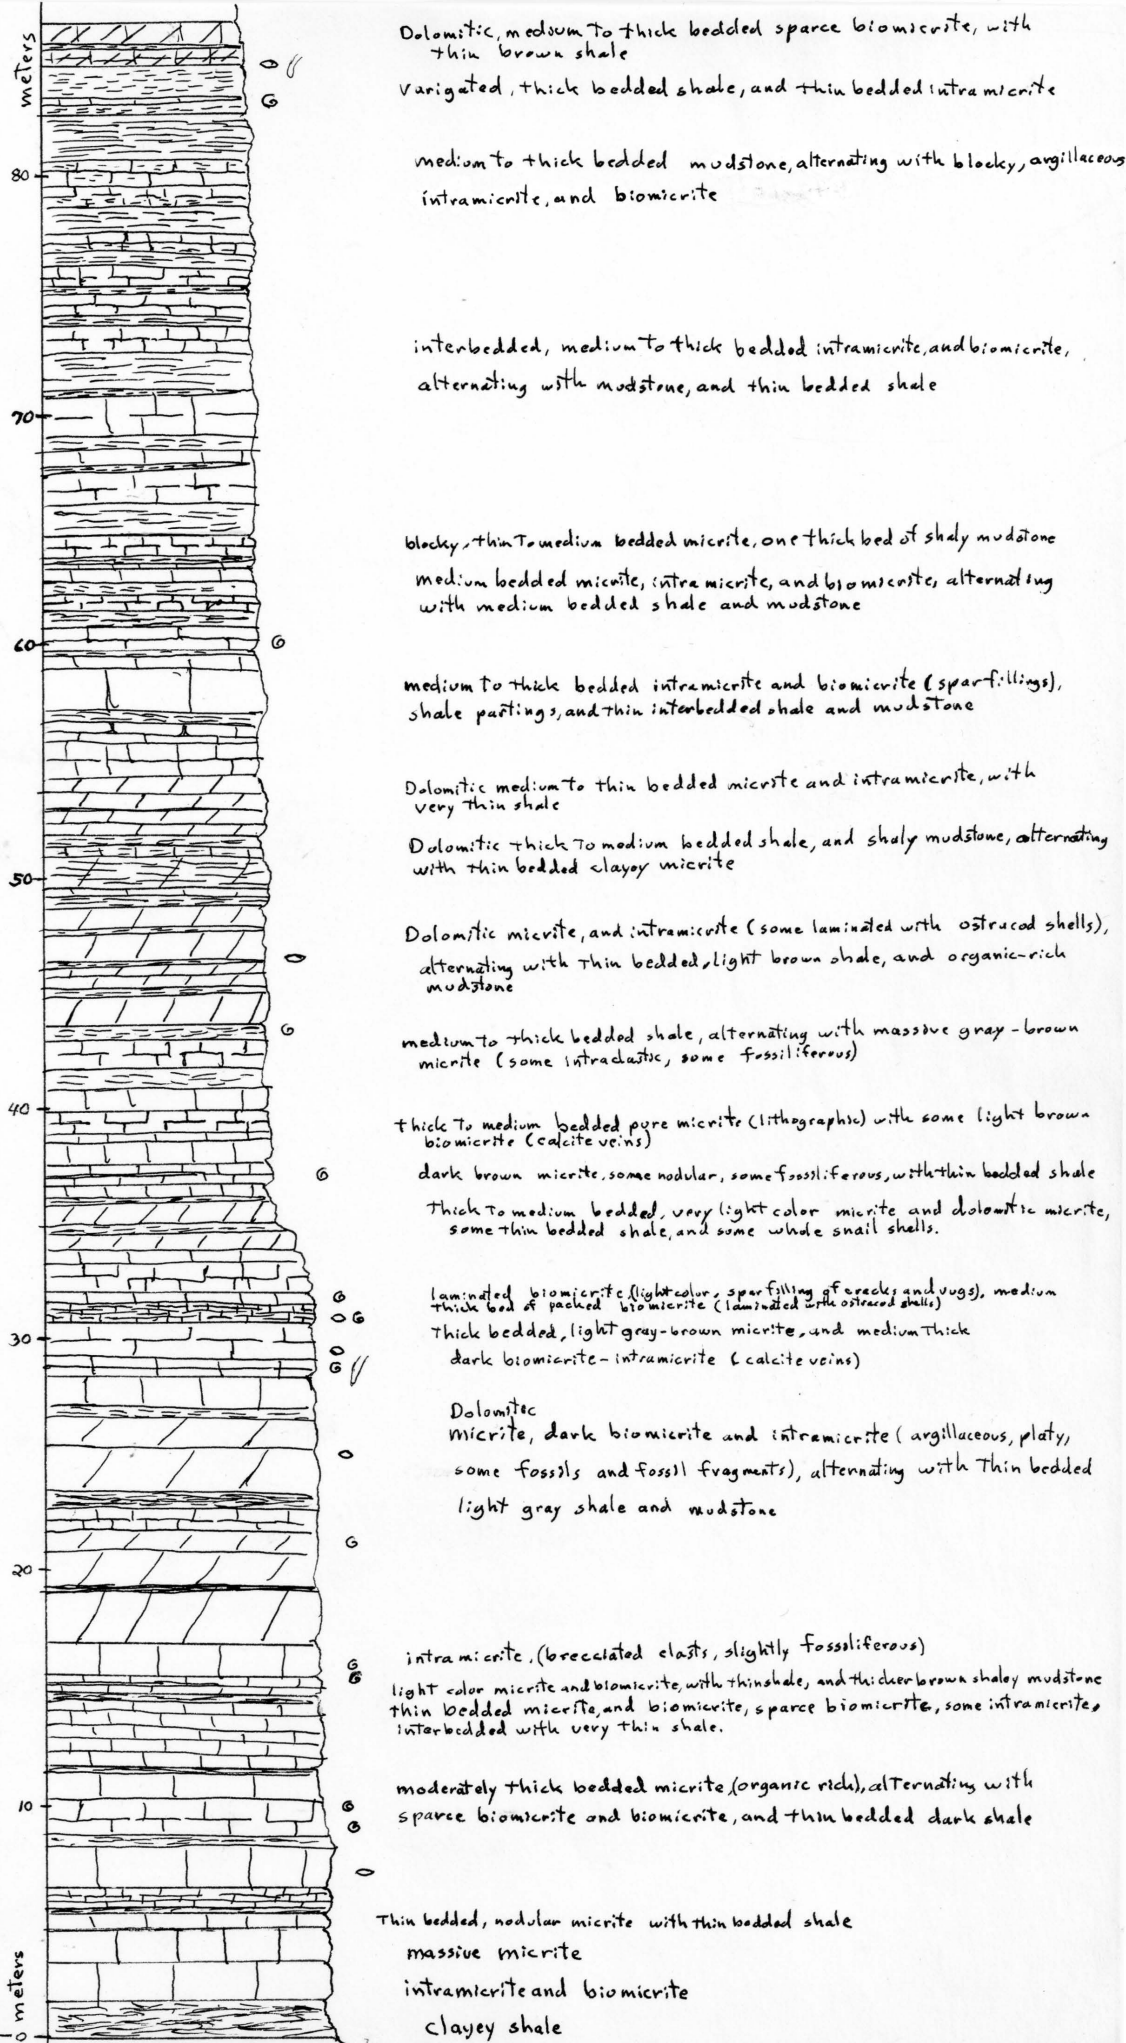 meters
Dolomitic, medium to thick bedded sparce biomicrite, with
thin brown shale
varigated, thick bedded shale, and thin bedded intramicrite
medium to thick bedded mudstone, alternating with blocky, argillaceous
80
intramicrite, and biomicrite
interbedded, medium to thick bedded intramicrite, and biomicrite,
alternating with mudstone, and thin bedded shale
70
blocky, thin to medium bedded micrite, one thick bed of shaly mudstone
medium bedded micrite, intramicrite, and biomicrite, alternating
with medium bedded shale and mudstone
60
medium to thick bedded intramicrite and biomicrite (sparfillings),
shale partings, and thin interbedded shale and mudstone
Dolomitic medium to thin bedded micrite and intramicrite, with
very thin shale
Dolomitic thick to medium bedded shale, and shaly mudstone, alternating
with thin bedded clayey micrite
50
Dolomitic micrite, and intramicrite (some laminated with ostracod shells),
alternating with thin bedded, light brown shale, and organic-rich
mudstone
medium to thick bedded shale, alternating with massive gray-brown
micrite (some intraclastic, some fossiliferous)
40
thick to medium bedded pure micrite (lithographic) with some light brown
biomicrite (calcite veins)
dark brown micrite, some nodular, some fossliferous, with thin bedded shale
Thick to medium bedded, very light color micrite and dolomitic micrite,
some thin bedded shale, and some whole snail shells.
laminated biomicrite (light color, spar filling of cracks and vugs), medium
thick bed of packed biomicrite (laminated with ostracod shells)
30
Thick bedded, light gray-brown micrite, and medium thick
dark biomicrite-intramicrite (calcite veins)
Dolomitec
micrite, dark biomicrite and intramicrite (argillaceous, platy,
some fossils and fossil fragments), alternating with thin bedded
light gray shale and mudstone
20
intramicrite, (brecciated clasts, slightly fossiliferous)
light color micrite and biomicrite, with thin shale, and thicker brown shaley mudstone
thin bedded micrite, and biomicrite, sparce biomicrite, some intramicrite,
interbedded with very thin shale.
moderately thick bedded micrite (organic rich), alternating with
10
sparce biomicrite and biomicrite, and thin bedded dark shale
Thin bedded, nodular micrite with thin bedded shale
massive micrite
intramicrite and biomicrite
clayey shale
0 meters